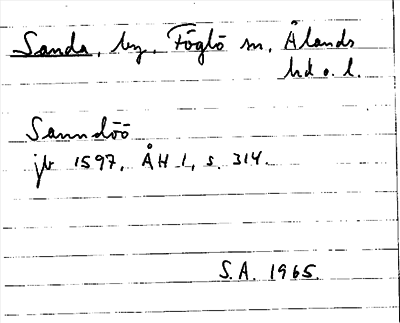 Sanda, by, Föglö sn, Ålands
hd o. l.
Sanndöö
jb 1597, ÅH 1, s. 314.
S.A. 1965.